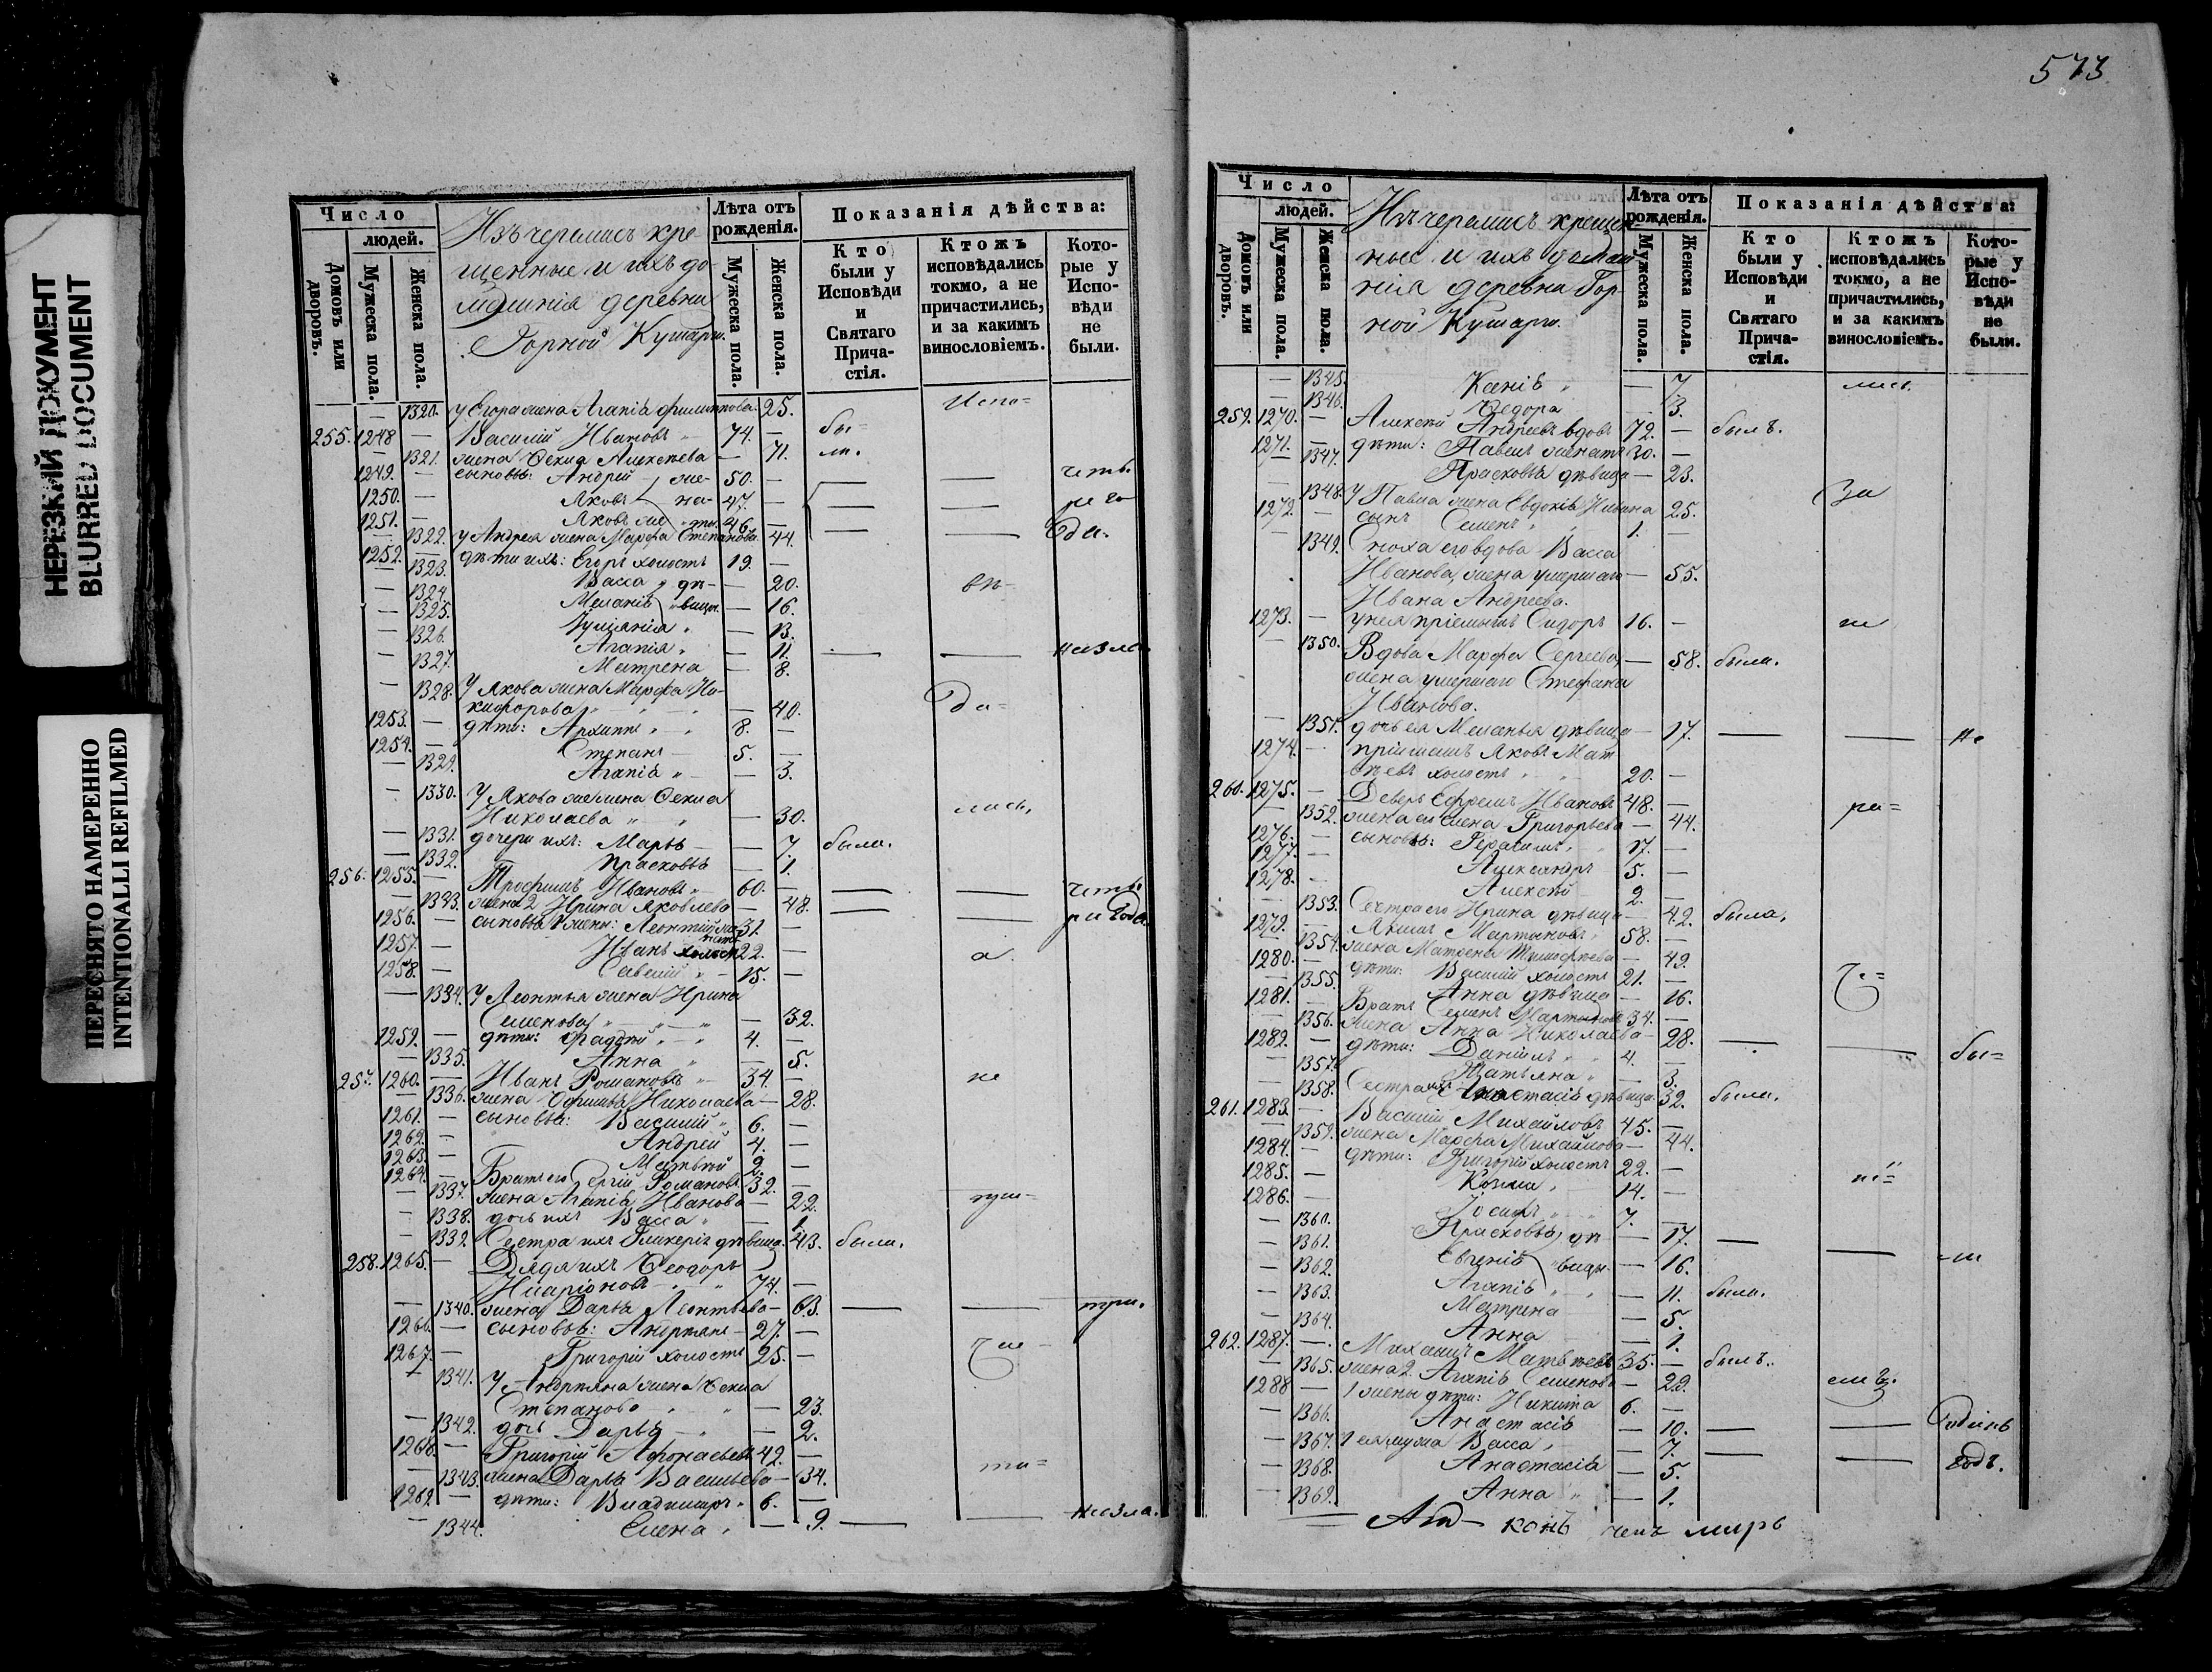 НЕРЕЗКИЙ ДОКУМЕНТ
BLURRED DOCUMENT
ПЕРЕСНЯТО НАМЕРЕННО
INTENTIONALLI REFILMED
Число
людей.
Домовъ или дворовъ.
Мужеска пола.
Женска пола.
Изъ черемисъ кре-
щенные и ихъ до-
машнія деревни
Горной Кушары.
Лѣта отъ рожденія.
Мужеска пола.
Женска пола.
Показанія дѣйства:
Кто были у Исповѣди и Святаго Прича-стія.
Ктожъ исповѣдались токмо, а не причастились, и за какимъ винословіемъ.
Кото-рые у Испо-вѣди не были.
— 1320. у Егора жена Агапія Филиппова. 25. Испо=
255. 1248 — Василій Ивановъ 74. — бы=
— 1321. жена Фекла Алексѣева — 71. ли.
1249. — сыновья: Андрей же- 50. — четы
1250. — Яковъ на- 47. — ре го
1251. — Яковъ же ты. 46. —
— 1322. у Андрея жена Марфа Степанова. 44. — — да.
1252. — дѣти ихъ: Егоръ холостъ 19. —
— 1323. Васса дѣ- — 20. вѣ-
— 1324. Меланія вицы. — 16.
— 1325. Іуліанія — 13.
— 1326. Агапія — 11. — —
— 1327. Матрена — 8.
— 1328. У Якова жена Марфа Ни-
кифорова — 40. да=
1253. — дѣти: Архипъ 8. —
1254. — Степанъ 5. —
— 1329. Агапія — 3.
— 1330. У Якова же жена Фекла
Николаева — 30. лись,
— 1331. дочери ихъ: Марья — 7 были.
— 1332. Прасковья — 1.
256. 1255. — Трофимъ Ивановъ 60. — — — четы
— 1333. жена 2 Ирина Яковлева — 48. — — ре года
1256. — сыновья 1 жены: Леонтій же- 31. —
1257. — Иванъ холостъ 22. — а
1258. — Савелій 15. —
— 1334. У Леонтья жена Ирина
Семенова — 32.
1259. — дѣти: Фаддѣй 4. —
— 1335. Анна — 5.
257. 1260. — Иванъ Романовъ 34. — не
— 1336. жена Николаева — 28.
1261. — сыновья: Василій 6. —
1262. — Андрей 4. —
1263. — Матвѣй 2. —
1264. — Братъ его Сергій Романовъ 32. —
— 1337. жена Агапія Иванова — 22. при=
— 1338. дочь ихъ Васса — 1.
— 1339. Сестра ихъ Гликерія дѣвица. 43. были.
258. 1265. — Дядя ихъ Феодоръ
Иларіоновъ 74. —
— 1340. жена Дарья Леонтьева — 63. — — три.
1266. — сыновья: Андреянъ — 27. —
1267. — Григорій холостъ 25. — час
— 1341. У Андреяна жена Фекла
Степанова — 23.
— 1342. дочь Дарья — 2.
1268. — Григорій Афонасьевъ 42. —
— 1343. жена Дарья Васильева — 34. ти=
1269. — дѣти: Владимиръ 6. —
— 1344. Елена — 9. — —
573
Число
людей.
Домовъ или дворовъ.
Мужеска пола.
Женска пола.
Изъ черемисъ крещен-
ные и ихъ домаш-
нія деревни Гор-
ной Кушары.
Лѣта отъ рожденія.
Мужеска пола.
Женска пола.
Показанія дѣйства:
Кто были у Исповѣди и Святаго Прича-стія.
Ктожъ исповѣдались токмо, а не причастились, и за какимъ винословіемъ.
Кото-рые у Испо-вѣди не были.
— 1345. Ксенія — 7 лись.
— 1346. Ѳедора — 3.
259. 1270. — Алексѣй Андреевъ вдовъ 72. — былъ.
1271. — дѣти: Павелъ женатъ 30. —
— 1347. Прасковья дѣвица — 23.
— 1348. У Павла жена Евдокія 25. За
1272. — сынъ Семенъ 1. —
— 1349. Сноха его вдова Васса
Иванова, жена умершаго — 55.
Ивана Андреева.
1273. — у нея пріемышъ Сидоръ 16. —
— 1350. Вдова Марфа Сергеева, — 58. была.
жена умершаго Стефана
Иванова.
— 1351. дочь ея Меланья дѣвица — 17. — — не
1274. — пріемышъ Яковъ Мат
вѣевъ холостъ 20. —
260. 1275. — Деверь Ефремъ Ивановъ 48. — ра=
— 1352. жена его Елена Григорьева — 44.
1276. — сыновья: Герасимъ 17. —
1277. — Александръ 5. —
1278. — Алексѣй 2. —
— 1353. Сестра его Ирина дѣвица — 42. была.
1279. — Якимъ Мартыновъ 58. —
— 1354. жена Матрена Тимофѣева — 49.
1280. — дѣти: Василій холостъ 21. —
— 1355. Анна дѣвица — 16. Че=
1281. — Братъ Семенъ Мартыновъ 34. —
— 1356. жена Анна Николаева — 28.
1282. — дѣти: Даніилъ 4. — — — бы=
— 1357. Татьяна — 3.
— 1358. Сестра ихъ Анастасія дѣвица. 32. была.
261. 1283. — Василій Михайловъ 45. —
— 1359. жена Марфа Михайлова — 44.
1284. — дѣти: Григорій холостъ 22. —
1285. — Козма 14. — ні=
1286. — Іосифъ 7. —
— 1360. Прасковья дѣ — 17. —
— 1361. Евгенія вицы — 16. — =ли
— 1362. Агапія — 11. была.
— 1363. Матрена — 5.
— 1364. Анна — 1.
262. 1287. — Михаилъ Матвѣевъ 35. — былъ.
— 1365. жена 2. Агапія Семенова — 29. емъ.
1288 — 1 жены дѣти: Никита 6. —
— 1366. Анастасія — 10. — — одинъ
— 1367. 1 ея мужа Васса — 7. — — годъ.
— 1368. Анастасія — 5.
— 1369. Анна — 1.